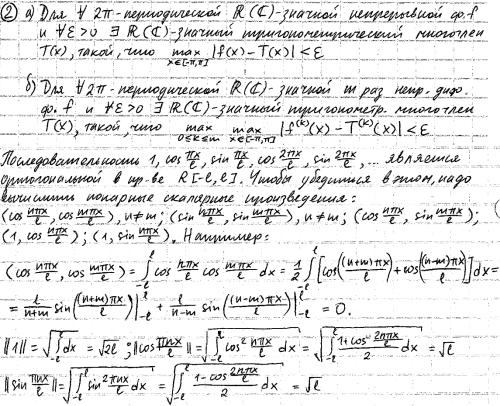 ② а) Для ∀ 2π-периодической ℝ(ℂ)-значной непрерывной ф. f
и ∀ε>0 ∃ ℝ(ℂ)-значный тригонометрический многочлен
T(x), такой, что max_{x∈[-π,π]} |f(x)-T(x)| < ε
б) Для ∀ 2π-периодической ℝ(ℂ)-значной m раз непр. диф.
ф. f и ∀ε>0 ∃ ℝ(ℂ)-значный тригонометр. многочлен
T(x), такой, что max_{0≤k≤m} max_{x∈[-π,π]} |f^{(k)}(x)-T^{(k)}(x)| < ε
Последовательность 1, cos πx/l, sin πx/l, cos 2πx/l, sin 2πx/l, ... является
ортогональной в пр-ве R[-l,l]. Чтобы убедиться в этом, надо
вычислить попарные скалярные произведения:
(cos nπx/l, cos mπx/l), n≠m; (sin nπx/l, sin mπx/l), n≠m; (cos nπx/l, sin mπx/l);
(1, cos nπx/l); (1, sin nπx/l). Например:
(cos nπx/l, cos mπx/l) = ∫_{-l}^{l} cos nπx/l cos mπx/l dx = 1/2 ∫_{-l}^{l} [cos((n+m)πx/l) + cos((n-m)πx/l)] dx =
= l/(n+m) sin((n+m)πx/l)|_{-l}^{l} + l/(n-m) sin((n-m)πx/l)|_{-l}^{l} = 0.
||1|| = √(∫_{-l}^{l} dx) = √2l; ||cos πnx/l|| = √(∫_{-l}^{l} cos² nπx/l dx) = √(∫_{-l}^{l} (1+cos 2nπx/l)/2 dx) = √l
||sin πnx/l|| = √(∫_{-l}^{l} sin² πnx/l dx) = √(∫_{-l}^{l} (1-cos 2nπx/l)/2 dx) = √l